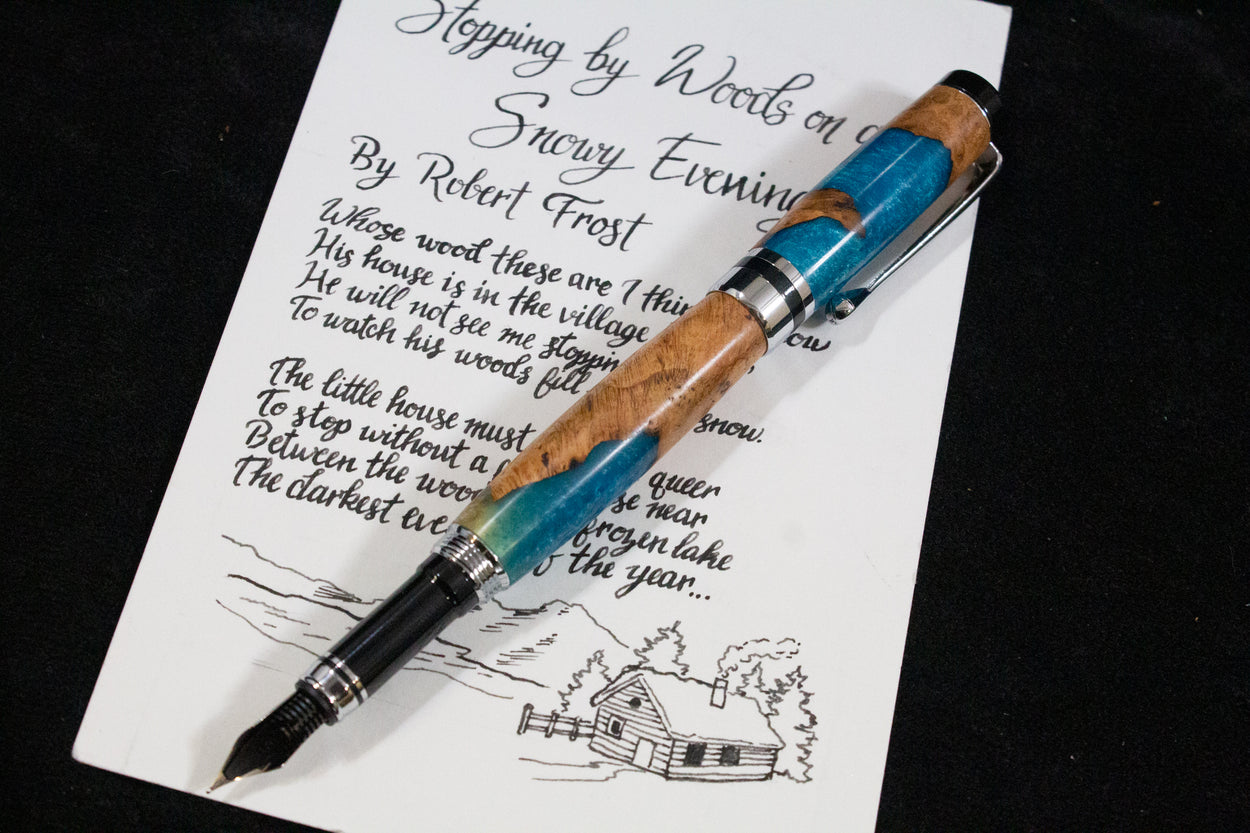 Stopping by Woods on a
Snowy Evening
By Robert Frost
Whose wood these are I thin
His house is in the village ow
He will not see me stoppin
To watch his woods fill snow.
The little house must queer
To stop without a se near
Between the woo frozen lake
The darkest eve the year...